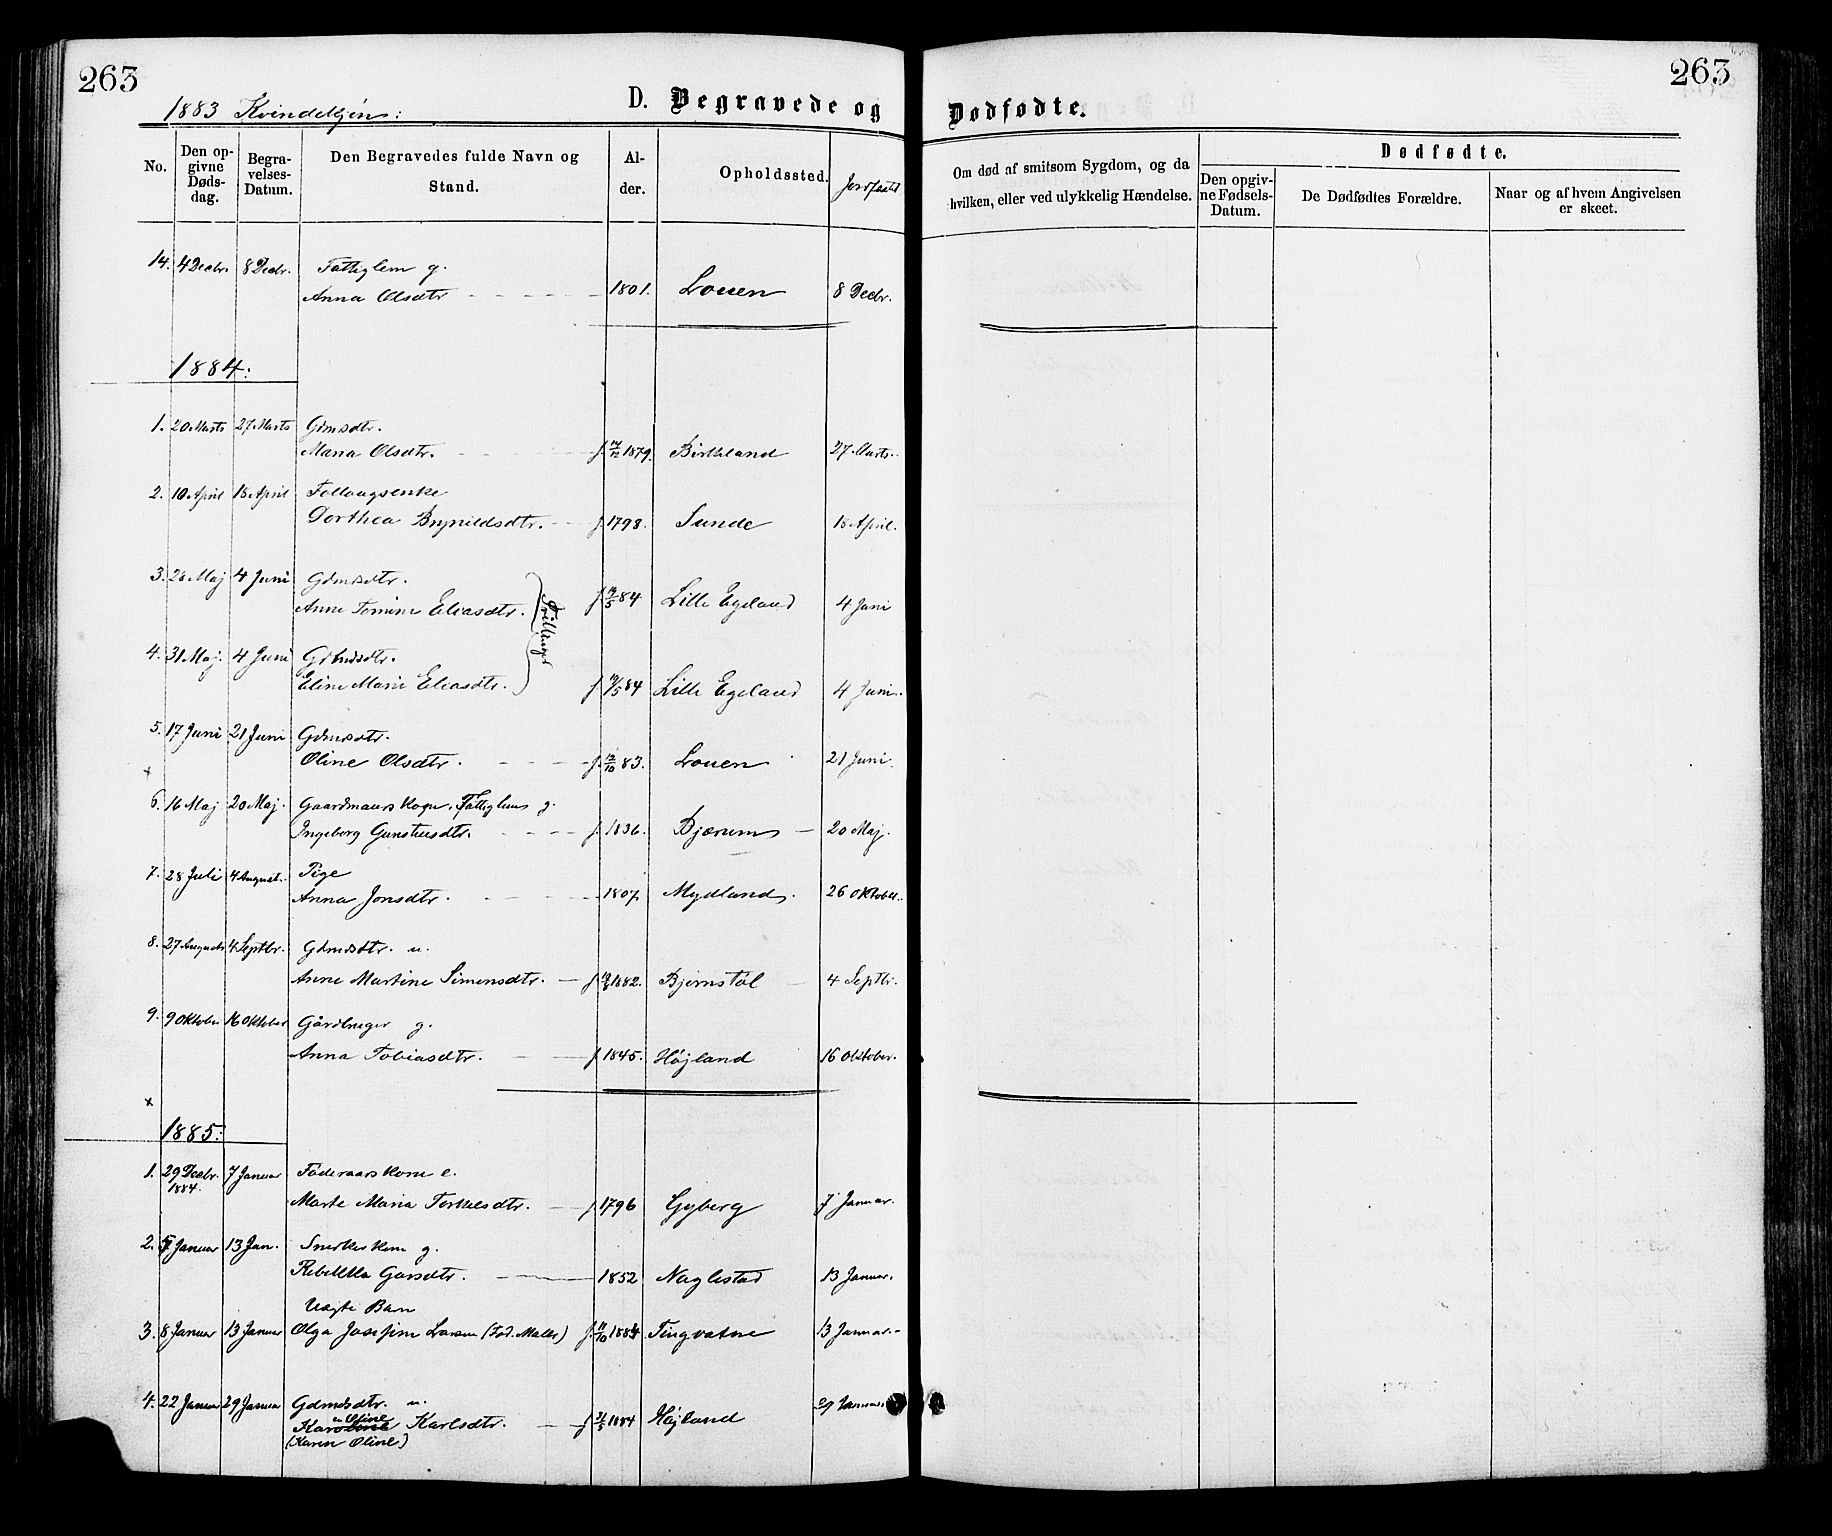 263
263
1883 Kvindekjøn:
D. Begravede og
Dødfødte.
No.
Den op-
givne
Døds-
dag.
Begra-
velses-
Datum.
Den Begravedes fulde Navn og
Stand.
Al-
der.
Opholdssted.
Jordfæstet
Om død af smitsom Sygdom, og da
hvilken, eller ved ulykkelig Hændelse.
Dødfødte.
Den opgiv-
ne Fødsels-
Datum.
De Dødfødtes Forældre.
Naar og af hvem Angivelsen
er skeet.
14. 4 Decbr. 8 Decbr. Fattiglem g.
Anna Olsdtr 1801. Louen 8 Decbr.
1884:
1. 20 Marts 27 Marts Gdmsdtr.
Maria Olsdtr. f. 1879. Birkeland 27 Marts.
2. 10 April 18 April Follaugsenke
Dorthea Brynildsdtr. f 1798. Sunde 18 April.
3. 28 Maj 4 Juni Gdmsdtr.
Anne Tomine Eliasdtr. f 84 Lille Egeland 4 Juni
Trillinger
4. 31 Maj. 4 Juni Gdmsdtr.
Eline Marie Eliasdtr. f 84 Lille Egeland 4 Juni.
5. 17 Juni 21 Juni Gdmsdtr.
Oline Olsdtr. f. 12/10 83. Louen 21 Juni.
6. 16 Maj 20 Maj. Gaardmandskone, Fattiglem g.
Ingeborg Gunsteinsdtr. f. 1836. Bjærum 20 Maj.
7. 28 Juli 4 August. Pige
Anna Jonsdtr. 1807 Mydland. 26 Oktober.
8. 27 August 4 Septbr. Gdmsdtr. u.
Anne Martine Simensdtr. f 1882. Bjørnstøl 4 Septbr.
9. 9 Oktober 16 Oktober Gårdbruger g.
Anna Tobiasdtr. f 1845. Højland 16 Oktober.
1885:
1. 29 Decbr. 7 Januar Føderaadskone e.
1884.
Marte Maria Torkelsdtr. f 1796 Gyberg 7 Januar.
2. 5 Januar 13 Jan. Snedkerkone g.
Rebekka Garsdtr. 1852 Naglestad 13 Januar.
Uægte Barn
3. 8 Januar 13 Januar Olga Josefine Larsen (Fød. Malle) f. 1884 Tingvatne 13 Januar.
4. 22 Januar 29 Januar Gdmsdtr. u.
Oline
Karoline Karlsdtr. f 1884 Højland 29 Januar.
(Karen Oline)